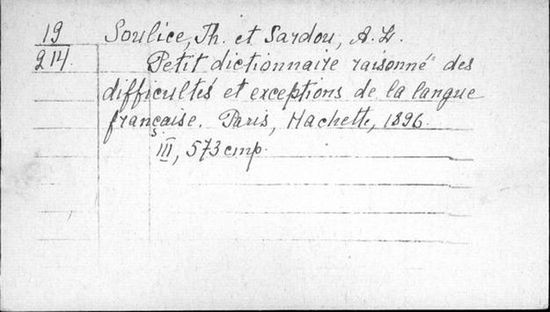 19 Soulice, Th. et Sardou, A. L.
214. Petit dictionnaire raisonné des
difficultés et exceptions de la langue
française. Paris, Hachette, 1896.
III, 573 стр.